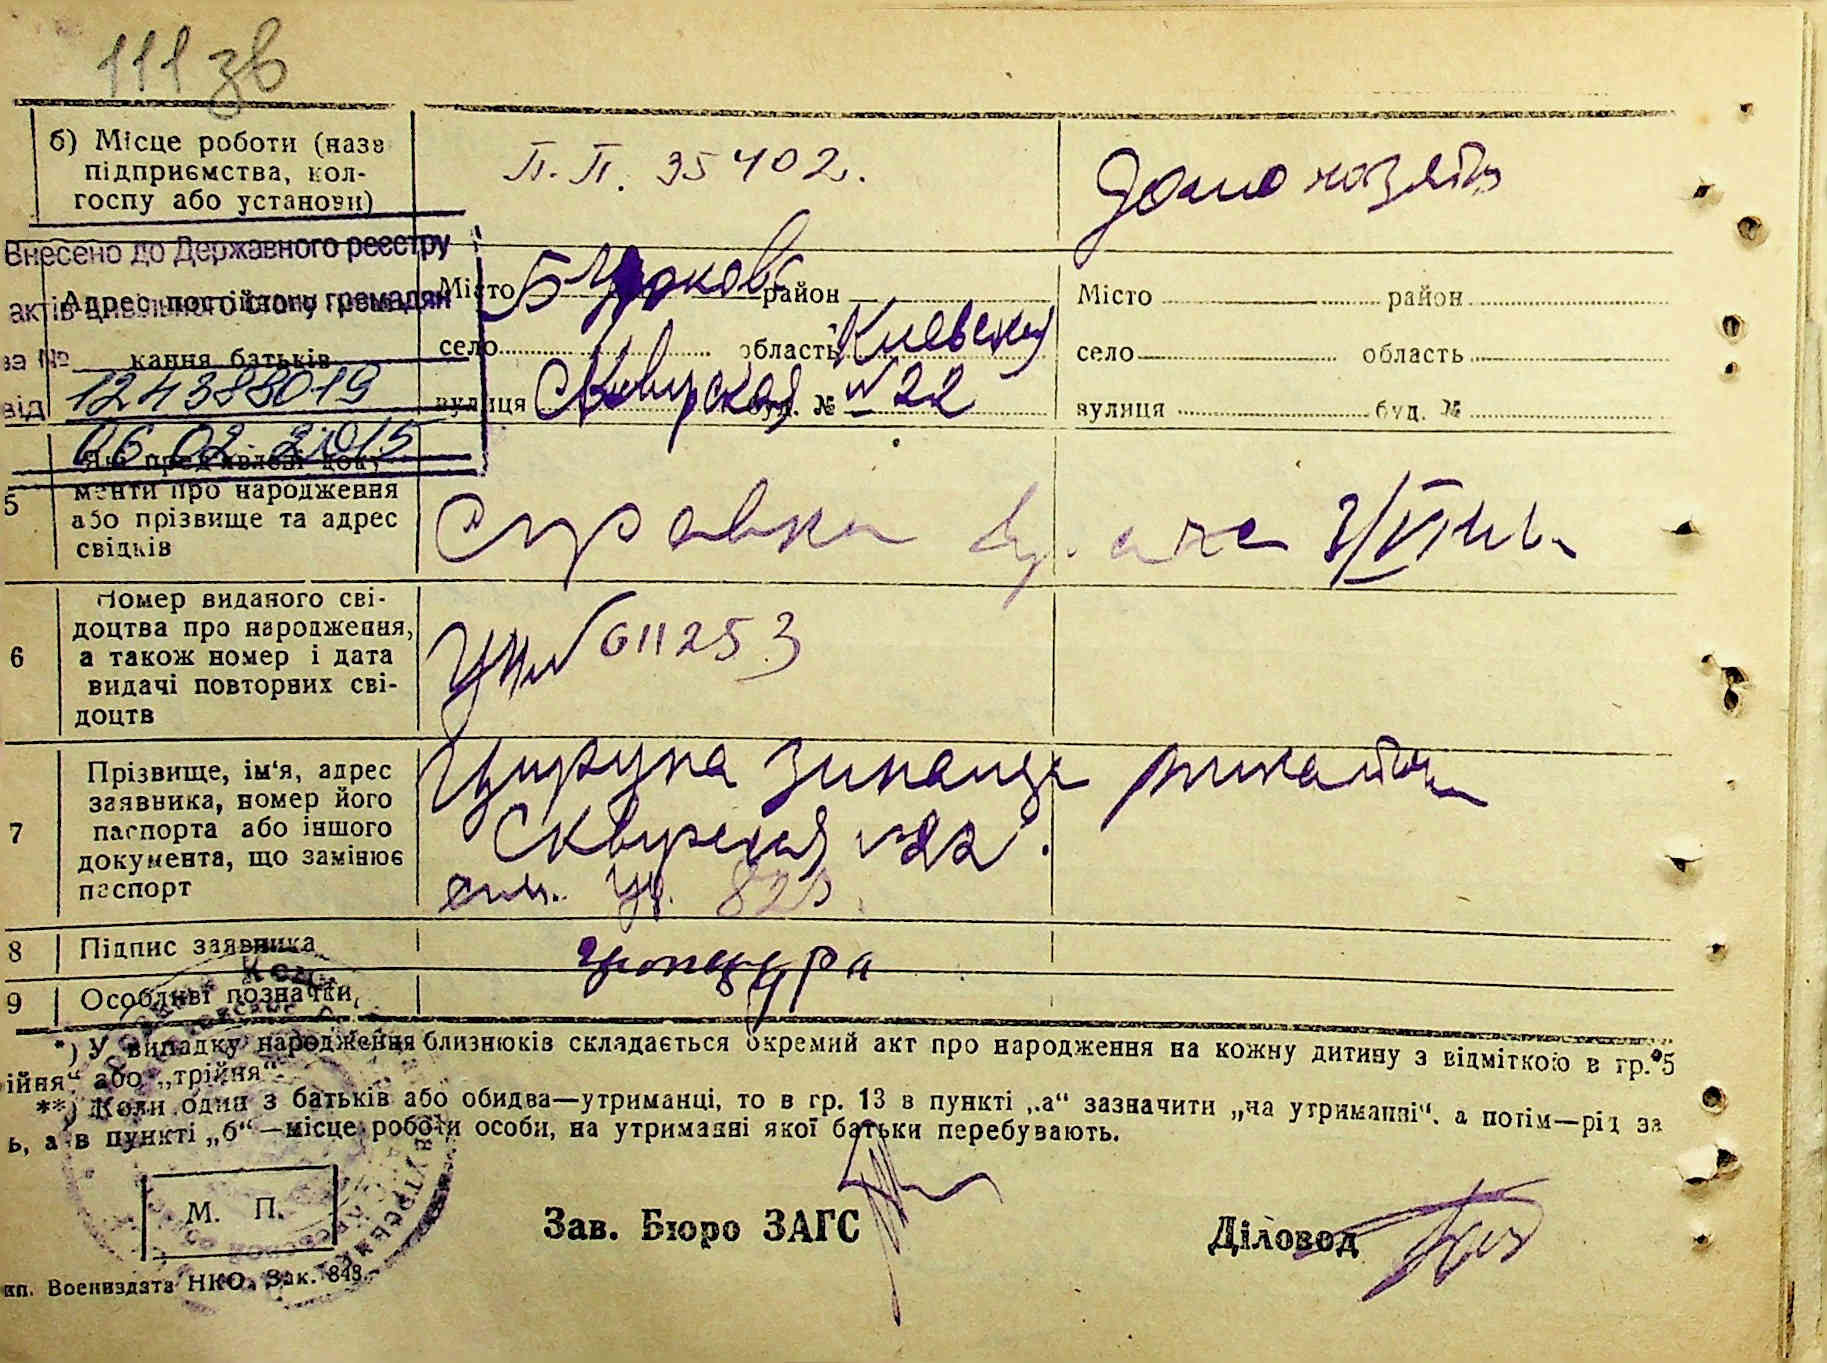 111 зв
б) Місце роботи (назв
підприємства, кол-
госпу або установи)
П.П. 35402.
Внесено до Державного реєстру
актів цивільного стану громадян
за № 124388019
від 06.02.2015
Адрес постійного
кання батьків
Місто Б Церковь район
село область Киевская
вулиця Сквирская буд. № 22
Місто район
село область
вулиця буд. №
5
Які пред'явлені доку-
менти про народження
або прізвище та адрес
свідків
Справка врача
6
Номер виданого сві-
доцтва про народження,
а також номер і дата
видачі повторних сві-
доцтв
№ 611253
7
Прізвище, ім'я, адрес
заявника, номер його
паспорта або іншого
документа, що замінює
паспорт
Сквирская №22.
8 Підпис заявника
9 Особливі позначки
*) У випадку народження близнюків складається окремий акт про народження на кожну дитину з відміткою в гр. 5
ійня" або „трійня".
**) Коли один з батьків або обидва—утриманці, то в гр. 13 в пункті „а" зазначити „на утриманні", а потім—рід за
ь, а в пункті „б"—місце роботи особи, на утриманні якої батьки перебувають.
М. П.
Зав. Бюро ЗАГС
Діловод
ип. Воениздата НКО. Зак. 848.